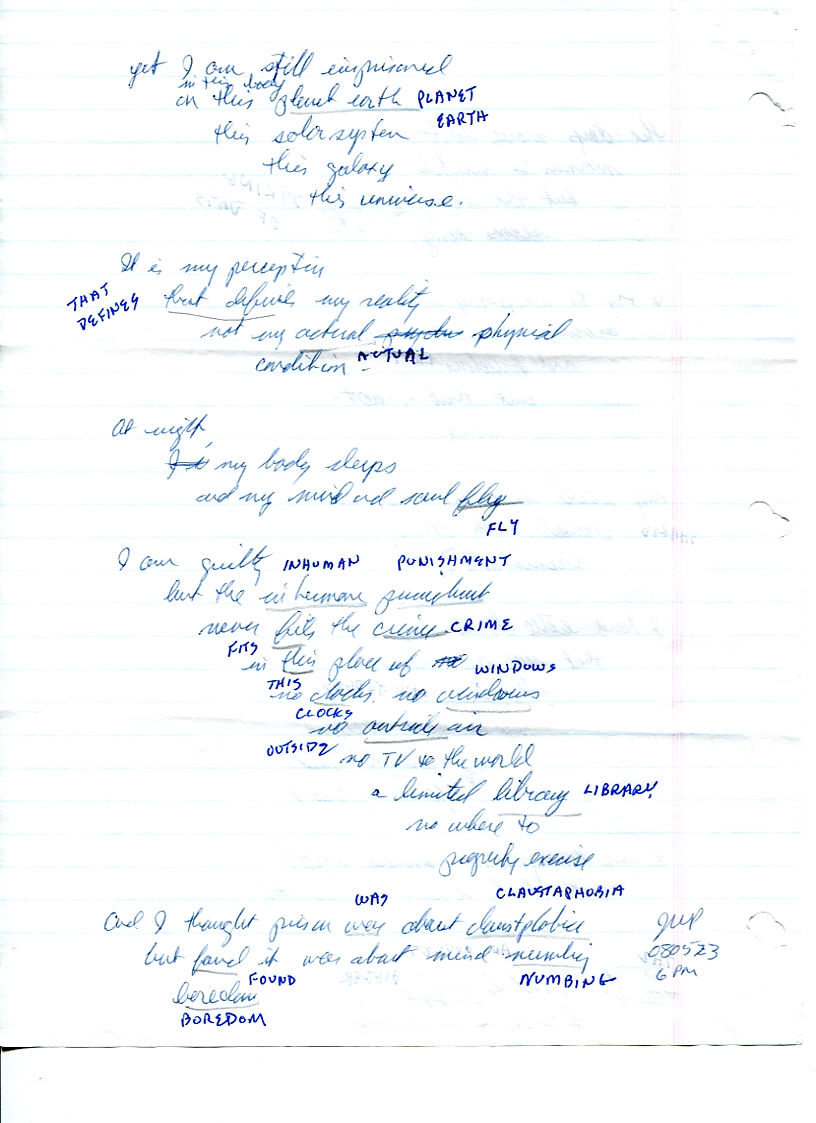 yet I am still imprisoned
in this body
on this planet earth PLANET
EARTH
this solar system
this galaxy
this universe.
It is my perceptin
THAT
DEFINES
that defines my reality
not my actual physical
condition - ACTUAL
At night,
my body sleeps
and my mind and soul fly
FLY
I am guilty INHUMAN PUNISHMENT
but the inhumane punishment
never fits the crime. CRIME
FITS
in this place of WINDOWS
THIS
no clocks, no windows
CLOCKS
no outside air
OUTSIDE
no TV to the world
a limited library LIBRARY
no where to
properly excise
WAS CLAUSTAPHOBIA
and I thought prison was about claustphobia
but found it was about mind numbing
FOUND NUMBING
boredom
BOREDOM
080523
6 PM